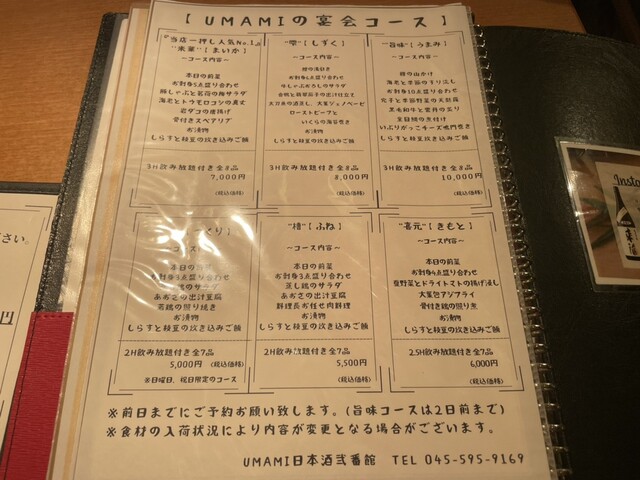 【 UMAMIの宴会コース 】
『当店一押し人気No.1』
"米華"【まいか】
～コース内容～
本日の前菜
お刺身5点盛り合わせ
豚しゃぶと茗荷の梅サラダ
海老とトウモロコシの真丈
岩ダコの唐揚げ
骨付きスペアリブ
お漬物
しらすと枝豆の炊き込みご飯
3H飲み放題付き全8品
7,000円
(税込価格)
"雫"【しずく】
～コース内容～
お刺身5点盛り合わせ
牛しゃぶおろしのサラダ
ローストビーフと
いくらの海苔巻き
お漬物
しらすと枝豆の炊き込みご飯
3H飲み放題付き全8品
8,000円
(税込価格)
"旨味"【うまみ】
～コース内容～
鮪の山かけ
海老と季節のすり流し
お刺身10点盛り合わせ
穴子と季節野菜の天麩羅
黒毛和牛と雲丹の炙り
金目鯛の煮付け
いぶりがっこチーズ鳴門巻き
しらすと枝豆の炊き込みご飯
3H飲み放題付き全8品
10,000円
(税込価格)
くり】
～コース内容～
本日の前菜
お刺身3点盛り合わせ
蒸し鶏のサラダ
あおさの出汁豆腐
若鶏の照り焼き
お漬物
しらすと枝豆の炊き込みご飯
2H飲み放題付き全7品
5,000円 (税込価格)
※日曜日、祝日限定のコース
"槽"【ふね】
～コース内容～
本日の前菜
お刺身3点盛り合わせ
蒸し鶏のサラダ
あおさの出汁豆腐
料理長お任せ肉料理
お漬物
しらすと枝豆の炊き込みご飯
2H飲み放題付き全7品
5,500円
(税込価格)
"喜元"【きもと】
～コース内容～
本日の前菜
お刺身4点盛り合わせ
夏野菜とドライトマトの揚げ浸し
大葉香アソフライ
骨付き鶏の照り煮
お漬物
しらすと枝豆の炊き込みご飯
2.5H飲み放題付き全7品
6,000円
(税込価格)
※前日までにご予約お願い致します。(旨味コースは2日前まで)
※食材の入荷状況により内容が変更となる場合がございます。
UMAMI日本酒弐番館 TEL 045-595-9169
さい。
円
Insta